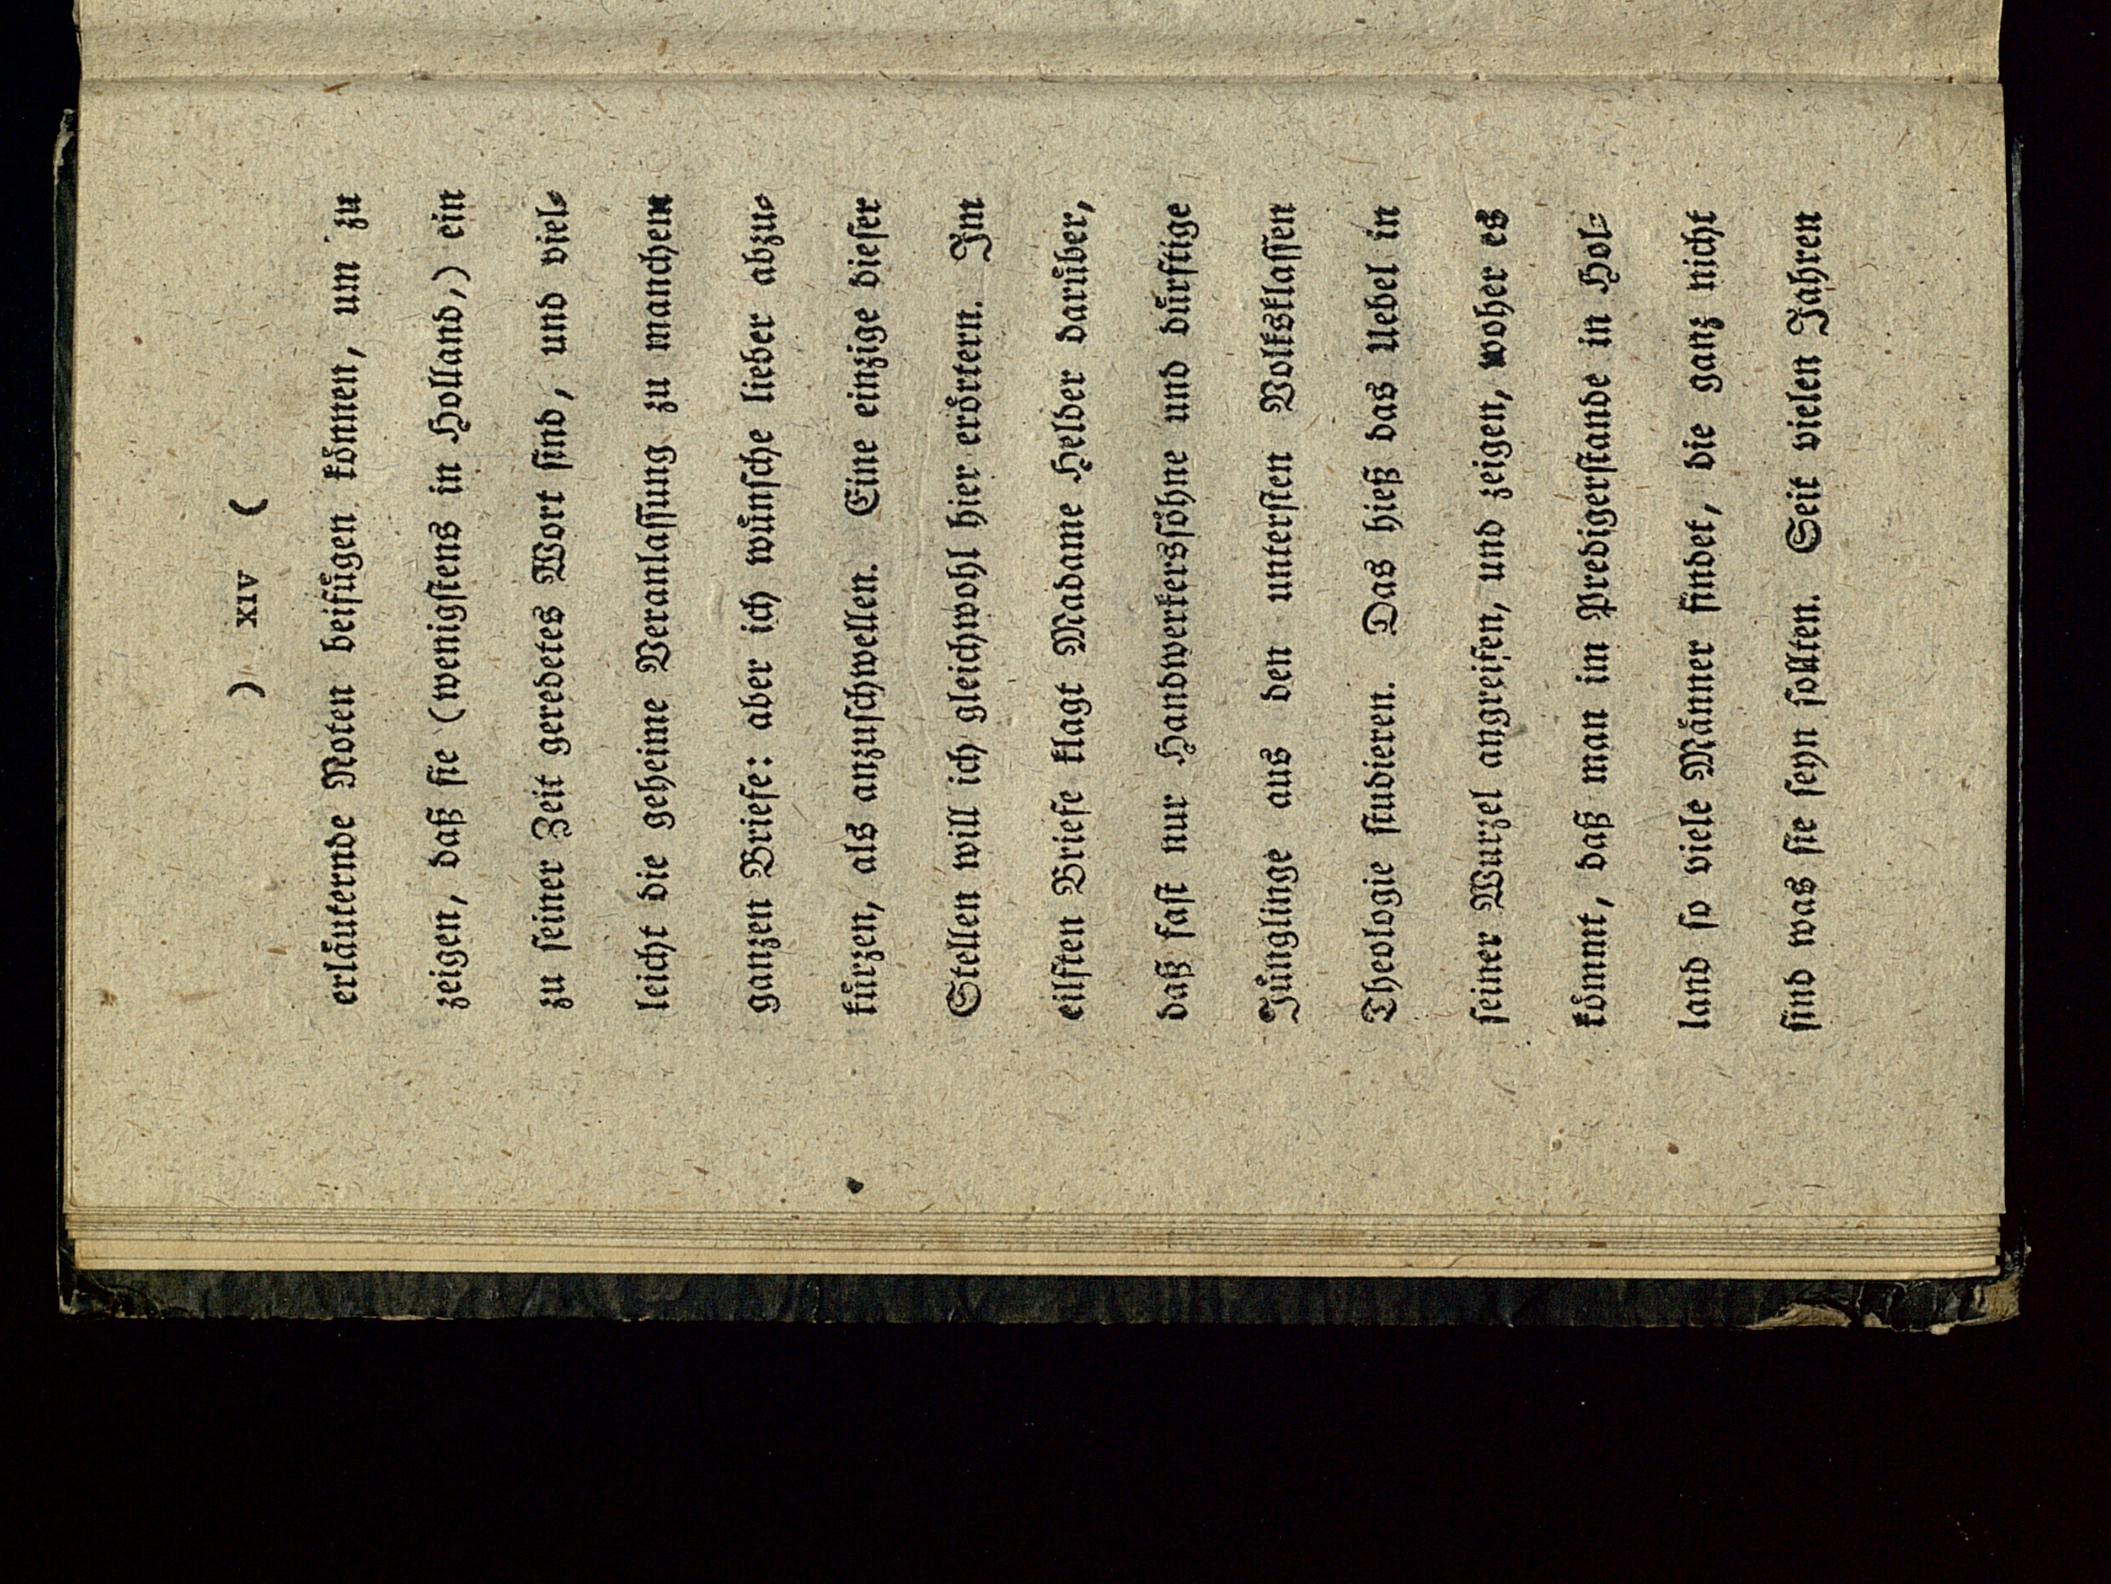 ) XIV (
erläuternde Noten beifügen können, um zu
zeigen, daß ſie (wenigſtens in Holland,) ein
zu ſeiner Zeit geredetes Wort ſind, und viel⸗
leicht die geheime Veranlaſſung zu manchen
ganzen Briefe: aber ich wünſche lieber abzu⸗
kürzen, als anzuſchwellen. Eine einzige dieſer
Stellen will ich gleichwohl hier erörtern. Im
eilften Briefe klagt Madame Helder darüber,
daß faſt nur Handwerkersſöhne und dürftige
Jünglinge aus den unterſten Volksklaſſen
Theologie ſtudieren. Das hieß das Uebel in
ſeiner Wurzel angreifen, und zeigen, woher es
kömmt, daß man im Predigerſtande in Hol⸗
land ſo viele Männer findet, die ganz nicht
ſind was ſie ſeyn ſollten. Seit vielen Jahren